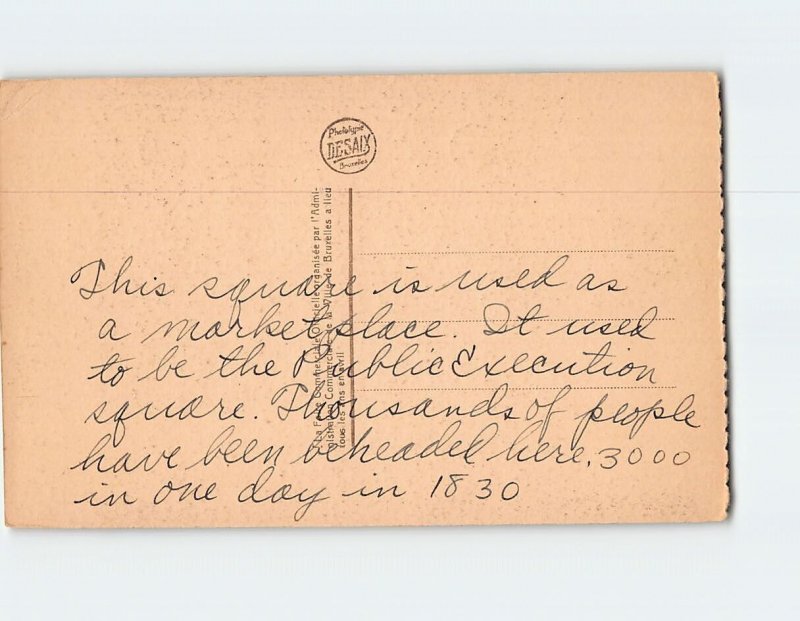 Phototypie
DESAIX
Bruxelles
La Foire Commerciale Officielle organisée par l'Admi-
nistration Commerciale de la Ville de Bruxelles a lieu
tous les ans en avril
This square is used as
a market place. It used
to be the Public Execution
square. Thousands of people
have been beheaded here, 3000
in one day in 1830